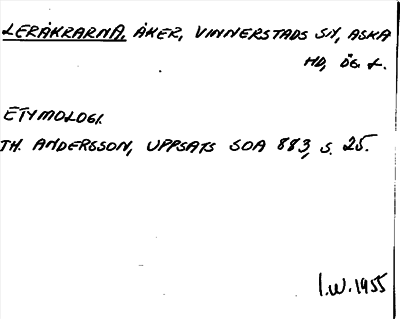 LERÅKRARNA, ÅKER, VINNERSTADS SN, ASKA
HD, ÖG. L.
ETYMOLOGI.
TH. ANDERSSON, UPPSATS SOA 883, S. 25.
I.W. 1955